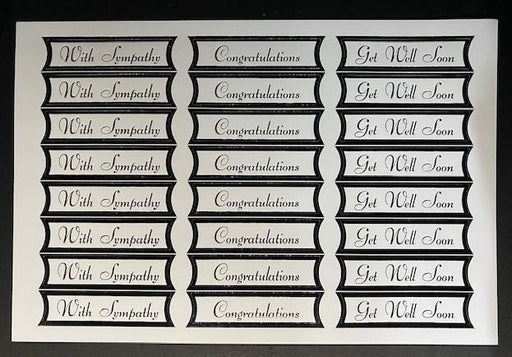 With Sympathy Congratulations Get Well Soon
With Sympathy Congratulations Get Well Soon
With Sympathy Congratulations Get Well Soon
With Sympathy Congratulations Get Well Soon
With Sympathy Congratulations Get Well Soon
With Sympathy Congratulations Get Well Soon
With Sympathy Congratulations Get Well Soon
With Sympathy Congratulations Get Well Soon